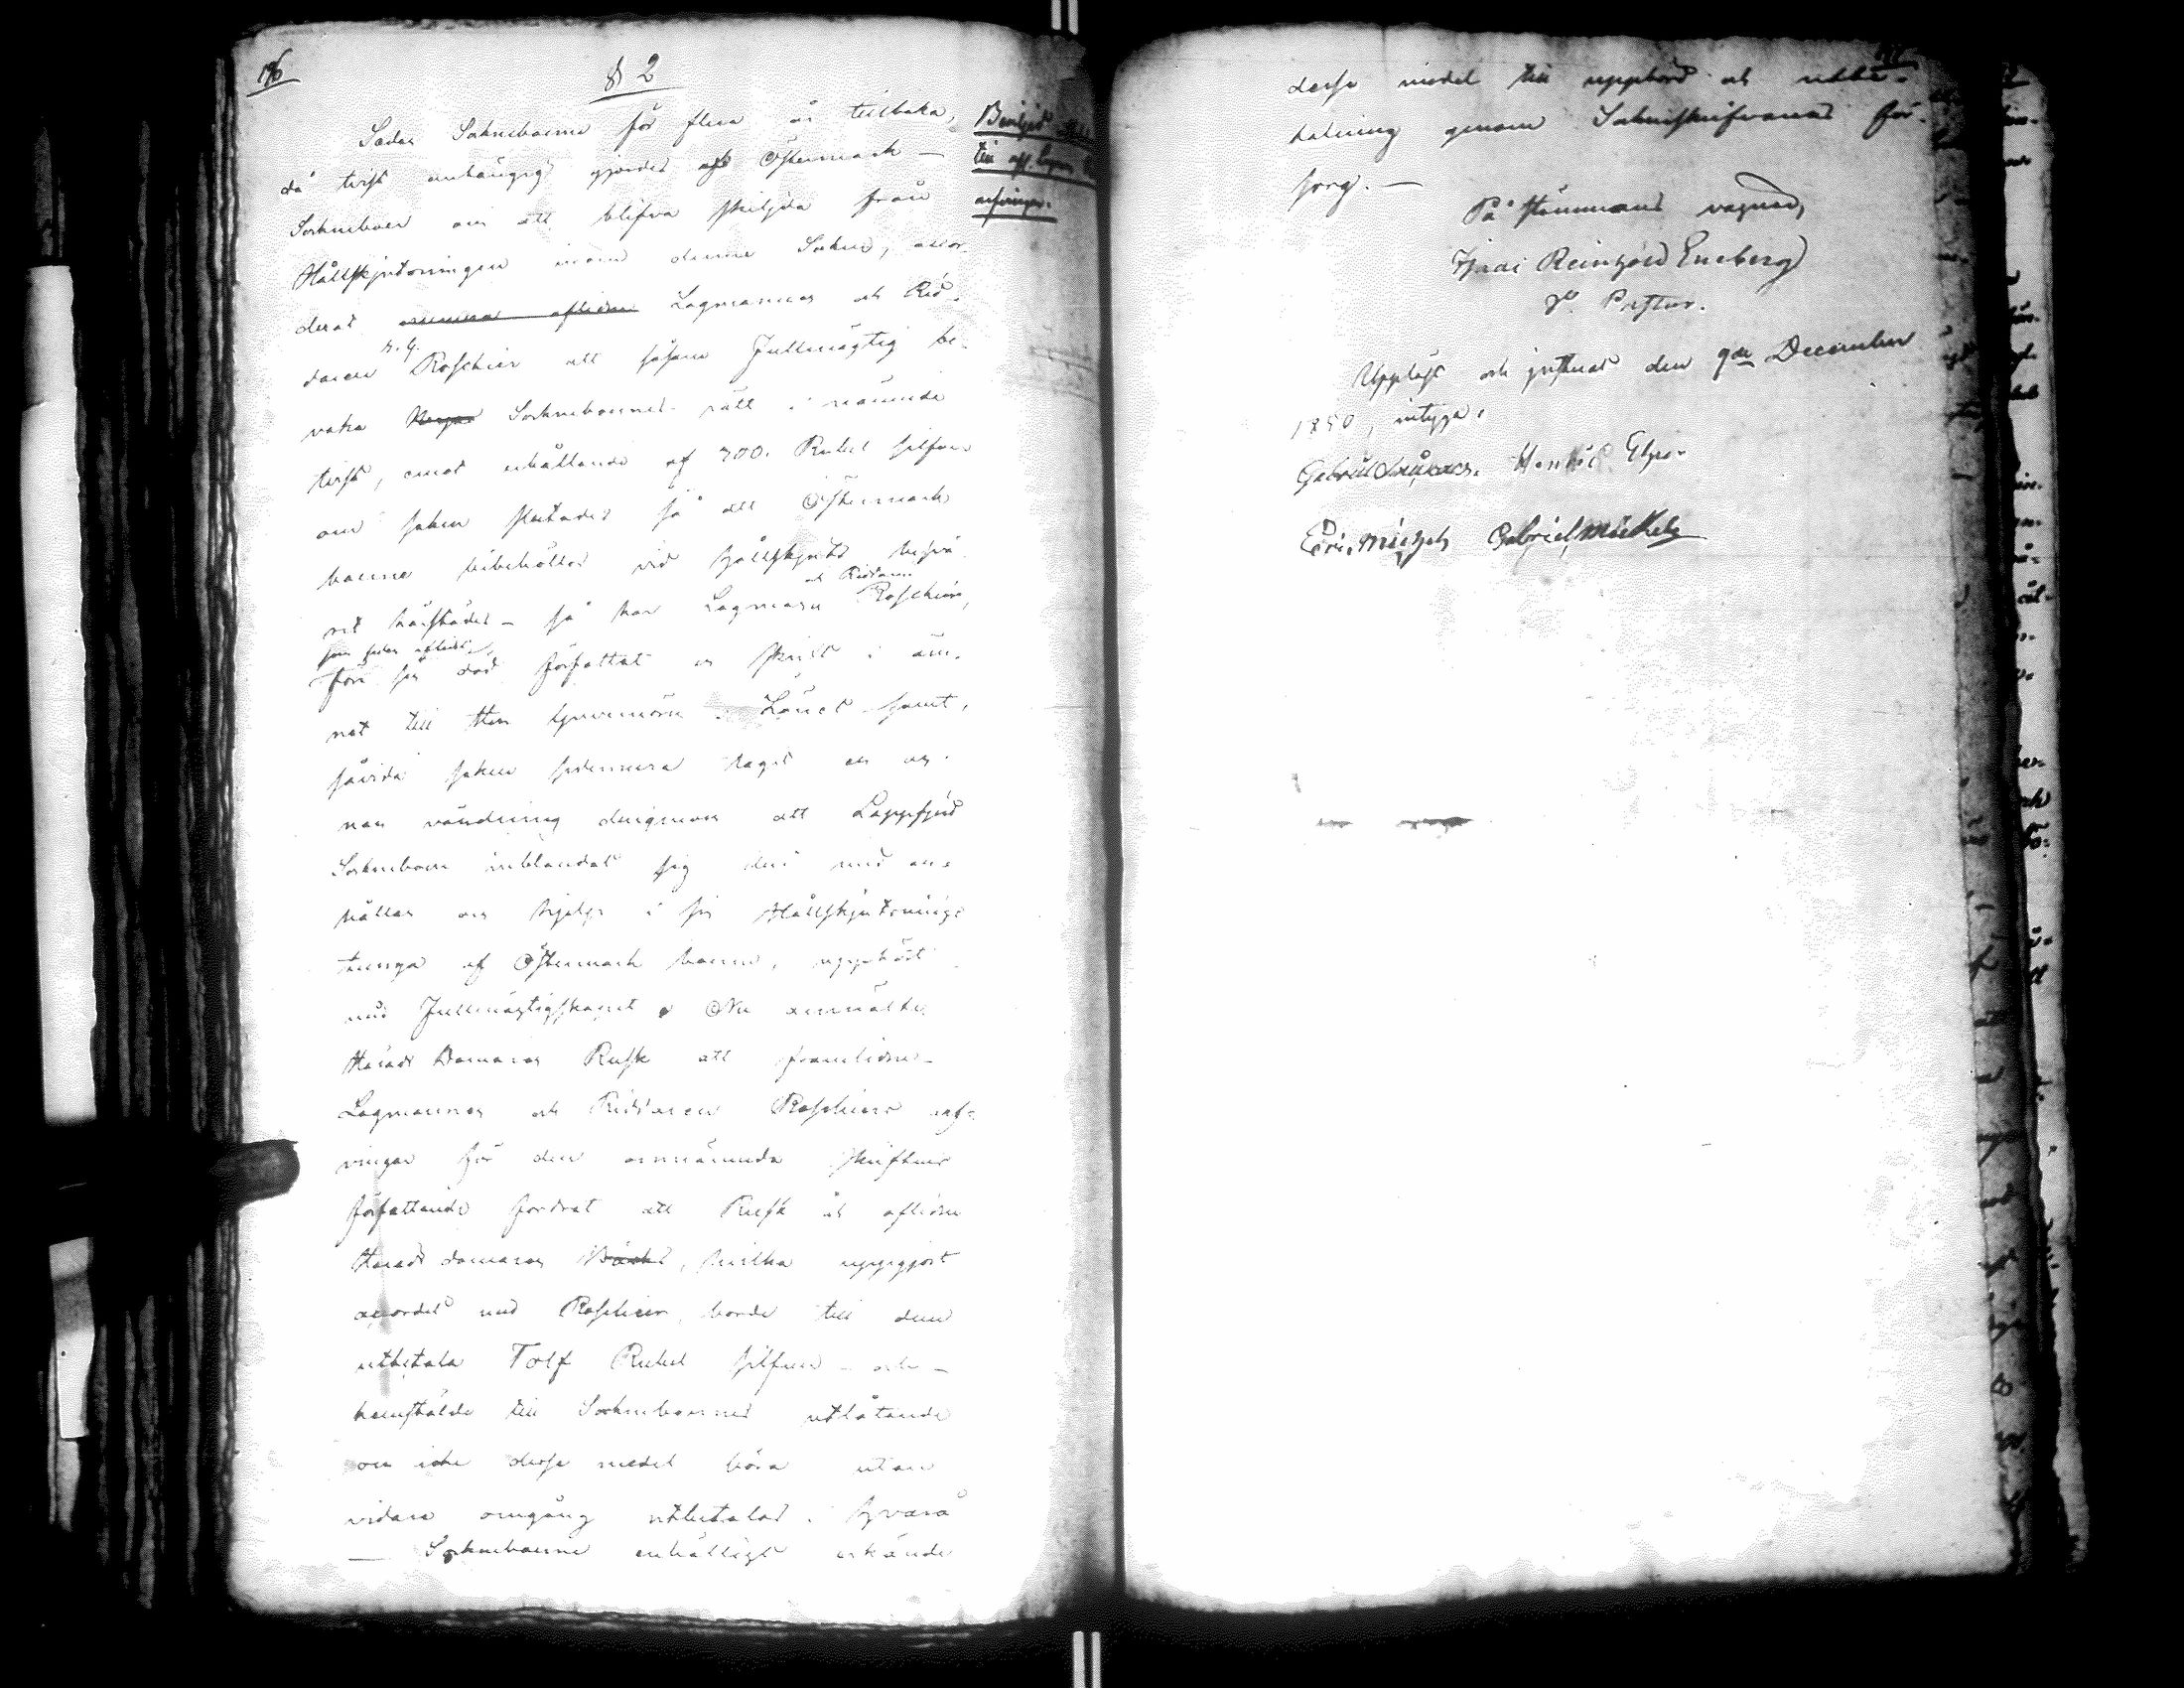 176
§ 2
Sedan Sokneboerne för flera år tillbaka,
då tvist anhängig gjordes af Östermark
Sockneboer om att blifva skiljda från
Hållskjutsningen inom denne Sokn, accor-
derat Lagmannen och Rid-
daren Roschier att såsom Fullmägtig be-
vaka Socknboernes rätt i nämnde
tvist, emot erhållande af 700. Rubel silfver
om saken slutades så att Östermark
boerne bibehölles vid hållskjuts besvä-
ret härstädes – så har Lagman och Riddaren Roschier,
som sedan aflidit,
före sin död författat en skrift i äm-
net till Herr Guvernören i Länet samt,
såvida saken sedermera tagit en an-
nan vändning derigenom att Lappfjerd
Sockneboer inblandat sig deri med an-
hållan om hjelp i sin Hållskjutsnings
tunga af Östermark boerne, upphört
med Fullmägtigskapet. Nu anmälte
Härads Domaren Rusk att framlidne
Lagmannen och Riddaren Roschiers arf-
vingar för den omnämnda skriftens
författande fordrat att Rusk och aflidne
Härads domaren, hvilka uppgjort
accordet med Roschier, borde till dem
utbetala Tolf Rubel silfver – och –
hemstälde till Sockneboernes utlåtande
om icke desse medel böra utan
vidare omgång utbetalas. Hvarå
— Sockneboerne enhälligt erkände
Beviljad
till afl. Lagm.
arfvingar.
desse medel till uppbörd och utbe-
talning genom Sokneskrifvarens för-
sorg. —
På Stämmans vagnar,
Isaac Reinhold Eneberg
Pastor.
Uppläst och justerat den 9de December
1850, intyga:
Gabriel
Gabriel Mickels